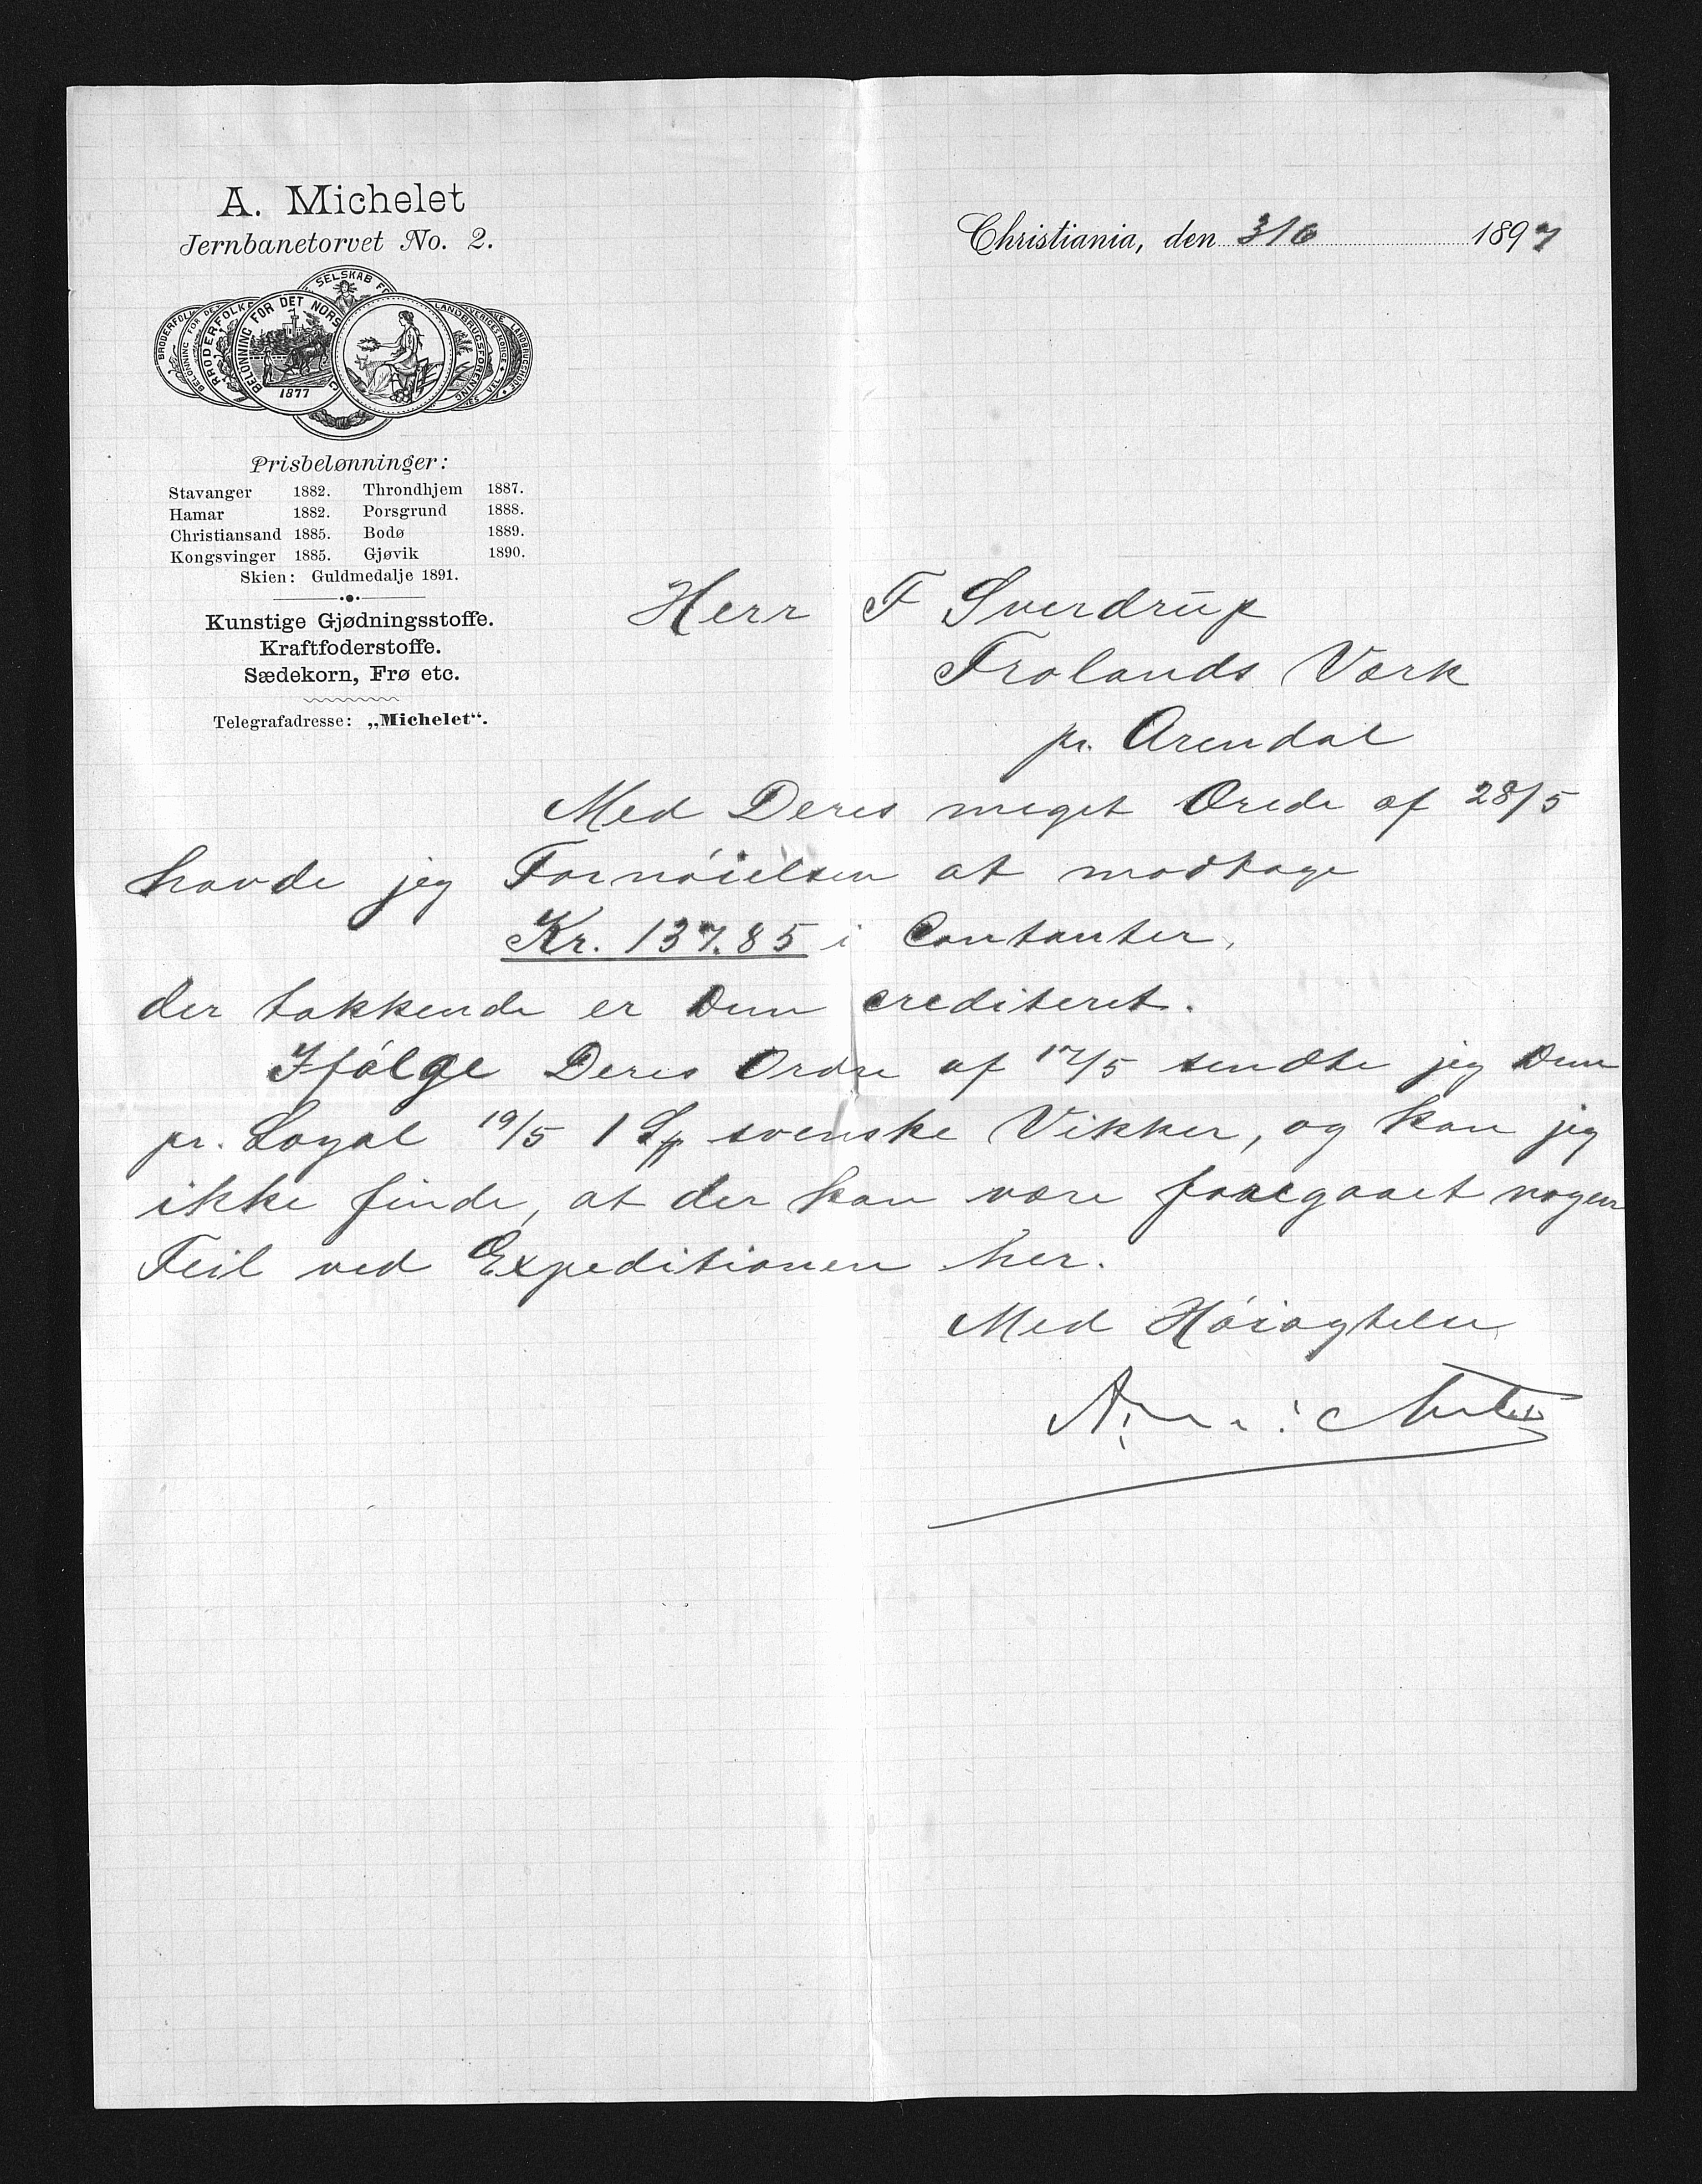 A. Michelet
Jernbanetorvet No. 2.
SELSKAB FO
BELØNNING FOR DET NORS
BRODERFOLK
LANDBRUGSFORENING
1877
Prisbelønninger:
Stavanger 1882. Throndhjem 1887.
Hamar 1882. Porsgrund 1888.
Christiansand 1885. Bodø 1889.
Kongsvinger 1885. Gjøvik 1890.
Skien: Guldmedalje 1891.
Kunstige Gjødningsstoffe.
Kraftfoderstoffe.
Sædekorn, Frø etc.
Telegrafadresse: „Michelet“.
Christiania, den 3/6 1897
Herr F Sverdrup
Frolands Værk
pr. Arendal
Med Deres meget Ærede af 28/5
havde jeg Fornöielsen at modtage
Kr. 137.85 i Contanter,
der takkende er Dem crediteret.
Ifölge Deres Ordre af 17/5 sendte jeg Dem
pr. Loyal 19/5 1 Sk svenske Vikker, og kan jeg
ikke finde, at der kan være foregaaet nogen
Feil ved Expeditionen her.
Med Höiagtelse